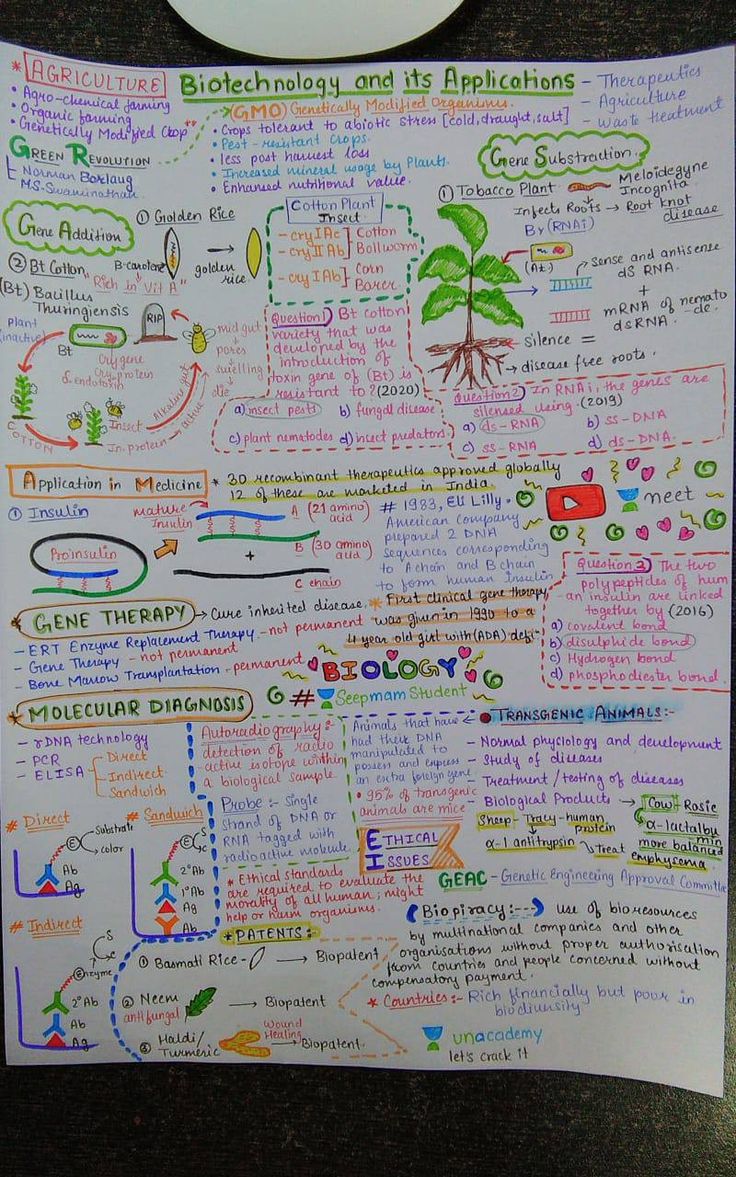 Biotechnology and its Applications
- Therapeutics
- Agriculture
- Waste treatment
* AGRICULTURE
• Agro-chemical farming
• Organic farming
• Genetically Modified Crop
GREEN REVOLUTION
Norman Borlaug
M.S. Swaminathan
GMO) Genetically Modified Organisms.
• Crops tolerant to abiotic stress [cold, draught, salt]
• Pest-resistant crops.
• less post harvest loss
• Increased mineral usage by Plants.
• Enhanced nutritional value.
Gene Addition
① Golden Rice
B-carotene
golden rice.
"Rich in "Vit A"
② Bt Cotton
(Bt) Bacillus
Thuringiensis
Plant
(inactive)
Bt
Cry gene
Cry protein
δ endotoxin
RIP
mid gut
+
pores
↓
swelling
↓
die
COTTON
Insect
In. protein
Alkaline gut
active
Cotton Plant
Insect
- cry I Ac
- cry II Ab
Cotton
Bollworm
- cry I Ab
Corn
Borer
Question 1) Bt cotton
variety that was
developed by the
introduction of
toxin gene of (Bt) is
resistant to? (2020)
a) insect pests
b) fungal disease
c) plant nematodes
d) insect predators
Gene Substraction
① Tobacco Plant
Meloidegyne
Incognita
Infects Roots → Root knot
disease
By (RNAi)
(A.t.)
sense and antisense
ds RNA.
+
mRNA of nemato
-de.
dsRNA
Silence =
→ disease free roots.
Question 2) In RNAi, the genes are
silensed using. (2019)
a) ds-RNA
b) ss-DNA
c) ss-RNA
d) ds-DNA.
Application in Medicine
* 30 recombinant therapeutics approved globally
12 of these are marketed in India.
① Insulin
mature
Insulin
Proinsulin
A (21 amino)
acid
+
B (30 amino)
acid
C chain
# 1983, Eli Lilly.
American company
prepared 2 DNA
sequences corresponding
to A chain and B chain
to form human insulin
neet
Question 3) The two
polypeptides of hum
-an insulin are linked
together by (2016)
a) covalent bond
b) disulphide bond
c) Hydrogen bond
d) phosphodiester bond.
* GENE THERAPY → Cure inherited disease.
* First clinical gene therapy
was given in 1990 to a
4 year old girl with (ADA) defi
- ERT Enzyme Replacement Therapy - not permanent
- Gene Therapy - not permanent
- Bone Marrow Transplantation - permanent
BIOLOGY
# SeepmamStudent
* MOLECULAR DIAGNOSIS
- rDNA technology
- PCR
- ELISA
Direct
Indirect
Sandwich
Autoradiography:-
detection of radio
-active isotope within
a biological sample.
Probe :- Single
strand of DNA or
RNA tagged with
radioactive molecule.
Animals that have
had their DNA
manipulated to
possess and express
an extra foreign gene
• 95% of transgenic
animals are mice
TRANSGENIC ANIMALS:-
- Normal physiology and development
- Study of diseases
- Treatment / testing of diseases
- Biological Products
Cow - Rosie
α-lactalbu
min
more balanced
Sheep - Tracy - human
protein
α-1 antitrypsin
treat
emphysema
# Direct
E
Substrate
color
Ab
Ag
# Sandwich
E
S
C
2° Ab
1° Ab
Ag
Ab
# Indirect
S
C
Enzyme
2° Ab
Ab
Ag
ETHICAL
ISSUES
* Ethical standards
are required to evaluate the
morality of all human; might
help or harm organisms.
GEAC - Genetic Engineering Approval Committe
Biopiracy:--- use of bioresources
by multinational companies and other
organisations without proper authorisation
from countries and people concerned without
compensatory payment.
* Countries:- Rich financially but poor in
biodiversity
* PATENTS:-
① Basmati Rice - → Biopatent
② Neem
antifungal
→ Biopatent
③ Haldi/
Turmeric
Wound
Healing
→ Biopatent.
unacademy
let's crack it